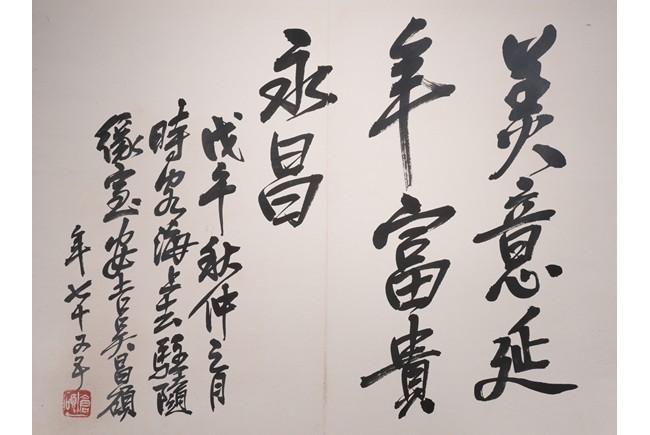 美意延
年富貴
永昌
戊午秋仲之月
時客海上去駐隨
緣室安吉吴昌碩
年七十五
倉碩